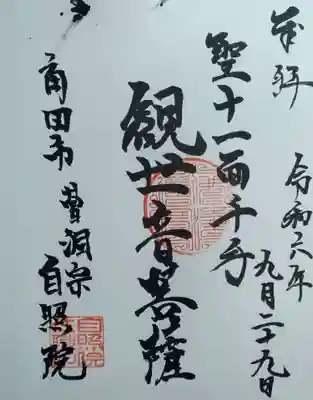 奉拝
令和六年九月二十九日
聖十一面千手
観世音菩薩
角田市 曹洞宗 自照院
自照院